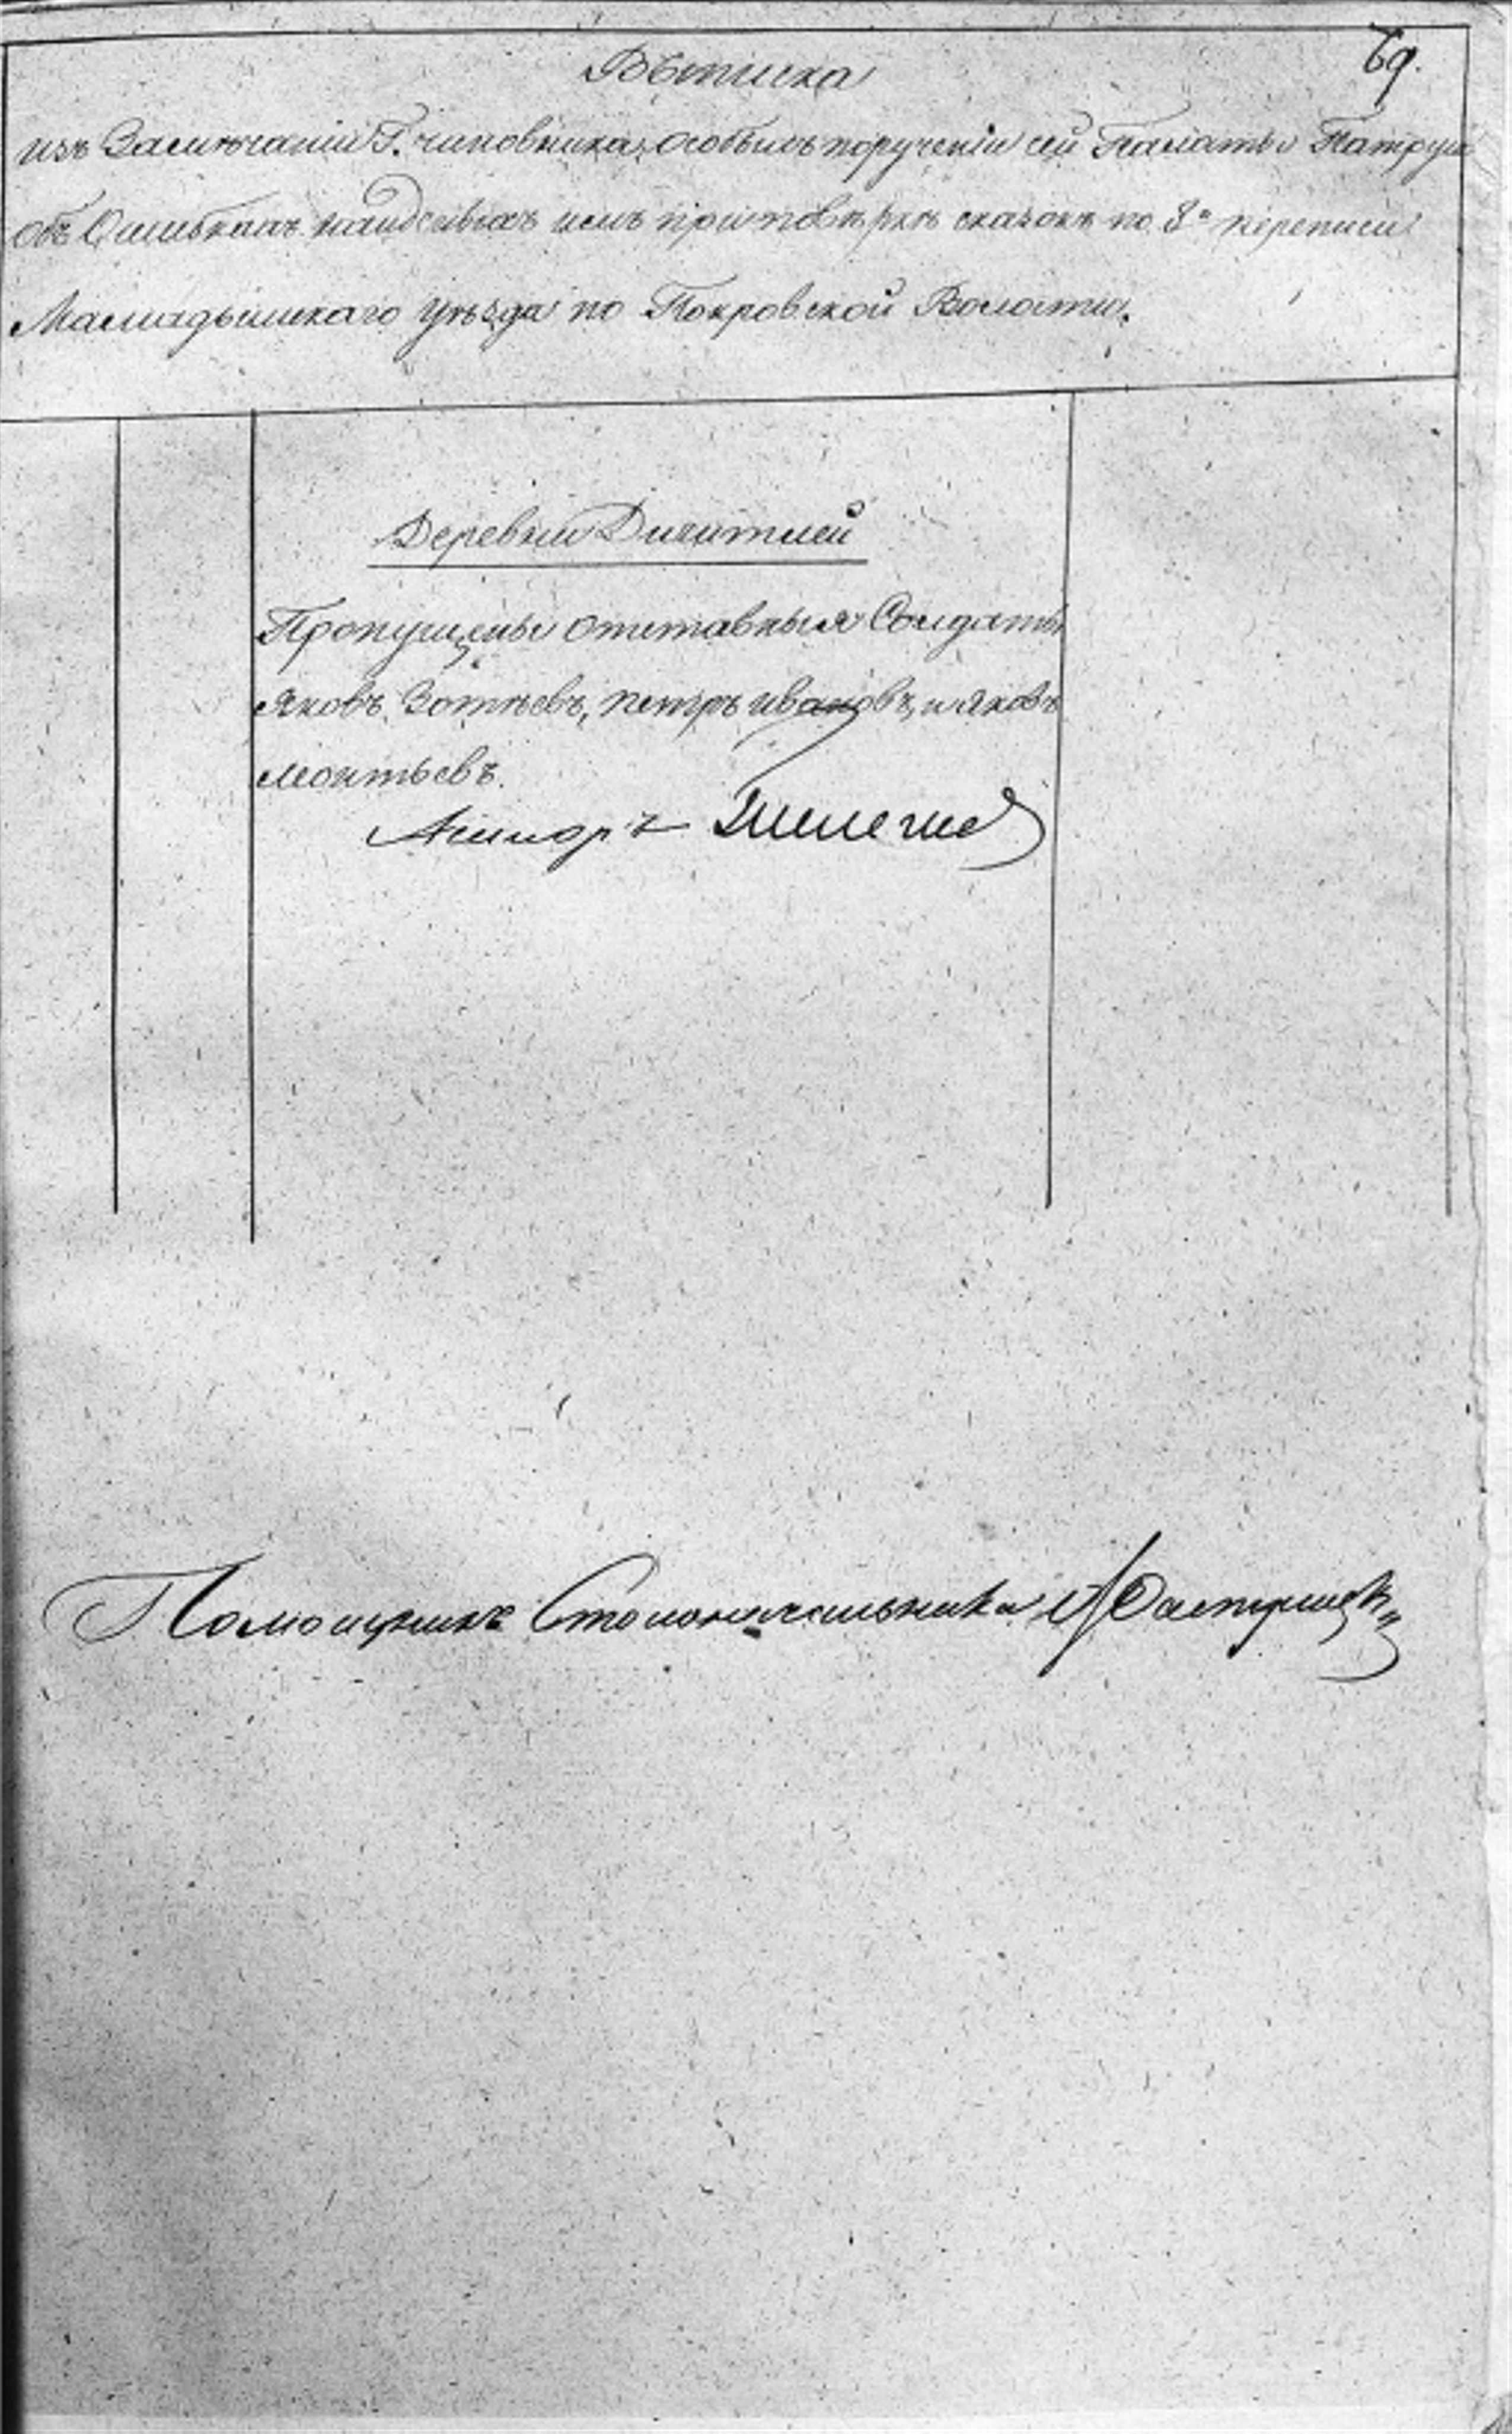 69.
Выписка
изъ Замѣчаній Г. чиновника особыхъ порученій сей Палаты
объ Ошибкахъ найденыхъ имъ при повѣркѣ сказокъ по 8й переписи
Мамадышскаго уѣзда по Покровской Волости.
Деревни
Пропущены отставныя Солдаты
Яковъ Зотѣевъ, петръ ивановъ, и Яковъ
леонтьевъ.
Помощникъ Столоначальника